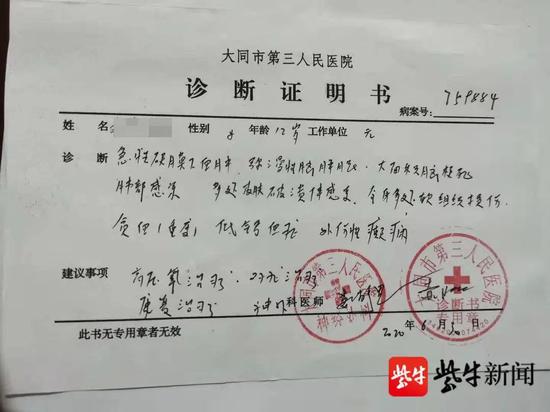 大同市第三人民医院
诊断证明书
病案号: 759884
姓名 性别 年龄 12岁 工作单位 无
诊断 急性硬膜下血肿 弥漫性脑肿胀 大面积脑梗死
肺部感染 多处皮肤破溃伴感染 全身多处软组织损伤
贫血(重度) 低钙血症 外伤性癫痫
建议事项 高压氧治疗 对症治疗
康复治疗 神外科医师
2020年6月30日
此书无专用章者无效
大同市第三人民医院
神经外科
大同市第三人民医院
诊断书
专用章
紫牛新闻